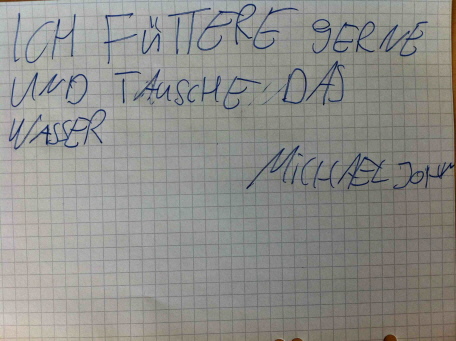 ICH FÜTTERE GERNE
UND TAUSCHE DAS
WASSER
MICHAEL JOHN